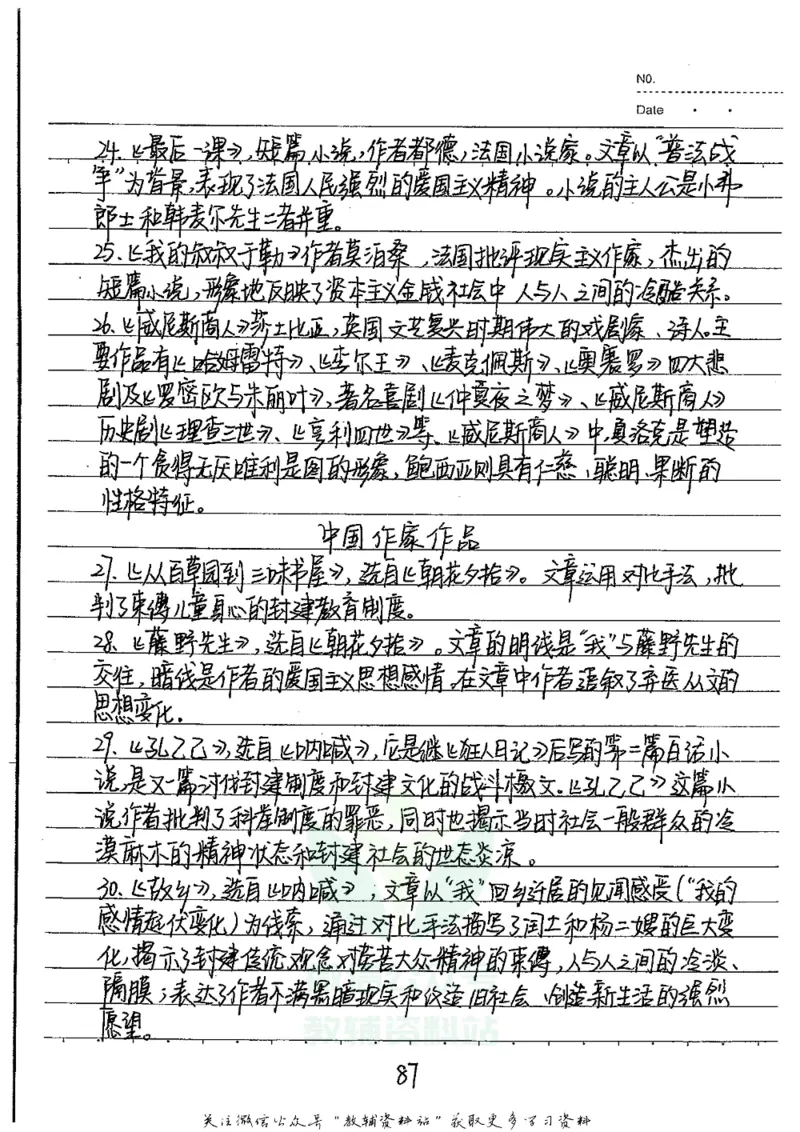 NO.
Date
24.《最后一课》,短篇小说,作者都德,法国小说家。文章以"普法战
争"为背景,表现了法国人民强烈的爱国主义精神。小说的主人公是小弗
郎士和韩麦尔先生二者并重。
25.《我的叔叔于勒》作者莫泊桑,法国批评现实主义作家,杰出的
短篇小说,形象地反映了资本主义金钱社会中人与人之间的冷酷关系。
26.《威尼斯商人》莎士比亚,英国文艺复兴时期伟大的戏剧家、诗人。主
要作品有《哈姆雷特》、《李尔王》、《麦克佩斯》、《奥赛罗》四大悲
剧及《罗密欧与朱丽叶》,著名喜剧《仲夏夜之梦》、《威尼斯商人》
历史剧《理查三世》、《亨利四世》等。《威尼斯商人》中夏洛克是塑造
的一个贪得无厌唯利是图的形象,鲍西亚则具有仁慈、聪明、果断的
性格特征。
中国作家作品
27.《从百草园到三味书屋》,选自《朝花夕拾》。文章运用对比手法,批
判了束缚儿童身心的封建教育制度。
28.《藤野先生》,选自《朝花夕拾》。文章的明线是"我"与藤野先生的
交往,暗线是作者的爱国主义思想感情。在文章中作者追叙了弃医从文的
思想变化。
29.《孔乙己》,选自《呐喊》,它是继《狂人日记》后写的第二篇白话小
说,是又一篇讨伐封建制度和封建文化的战斗檄文。《孔乙己》这篇小
说作者批判了科举制度的罪恶,同时也揭示当时社会一般群众的冷
漠麻木的精神状态和封建社会的世态炎凉。
30.《故乡》,选自《呐喊》,文章以"我"回乡迁居的见闻感受("我的
感情起伏变化)为线索,通过对比手法描写了闰土和杨二嫂的巨大变
化,揭示了封建传统观念对劳苦大众精神的束缚,人与人之间的冷淡、
隔膜;表达了作者不满黑暗现实和改造旧社会、创造新生活的强烈
愿望。
教辅资料站
87
关注微信公众号"教辅资料站"获取更多学习资料